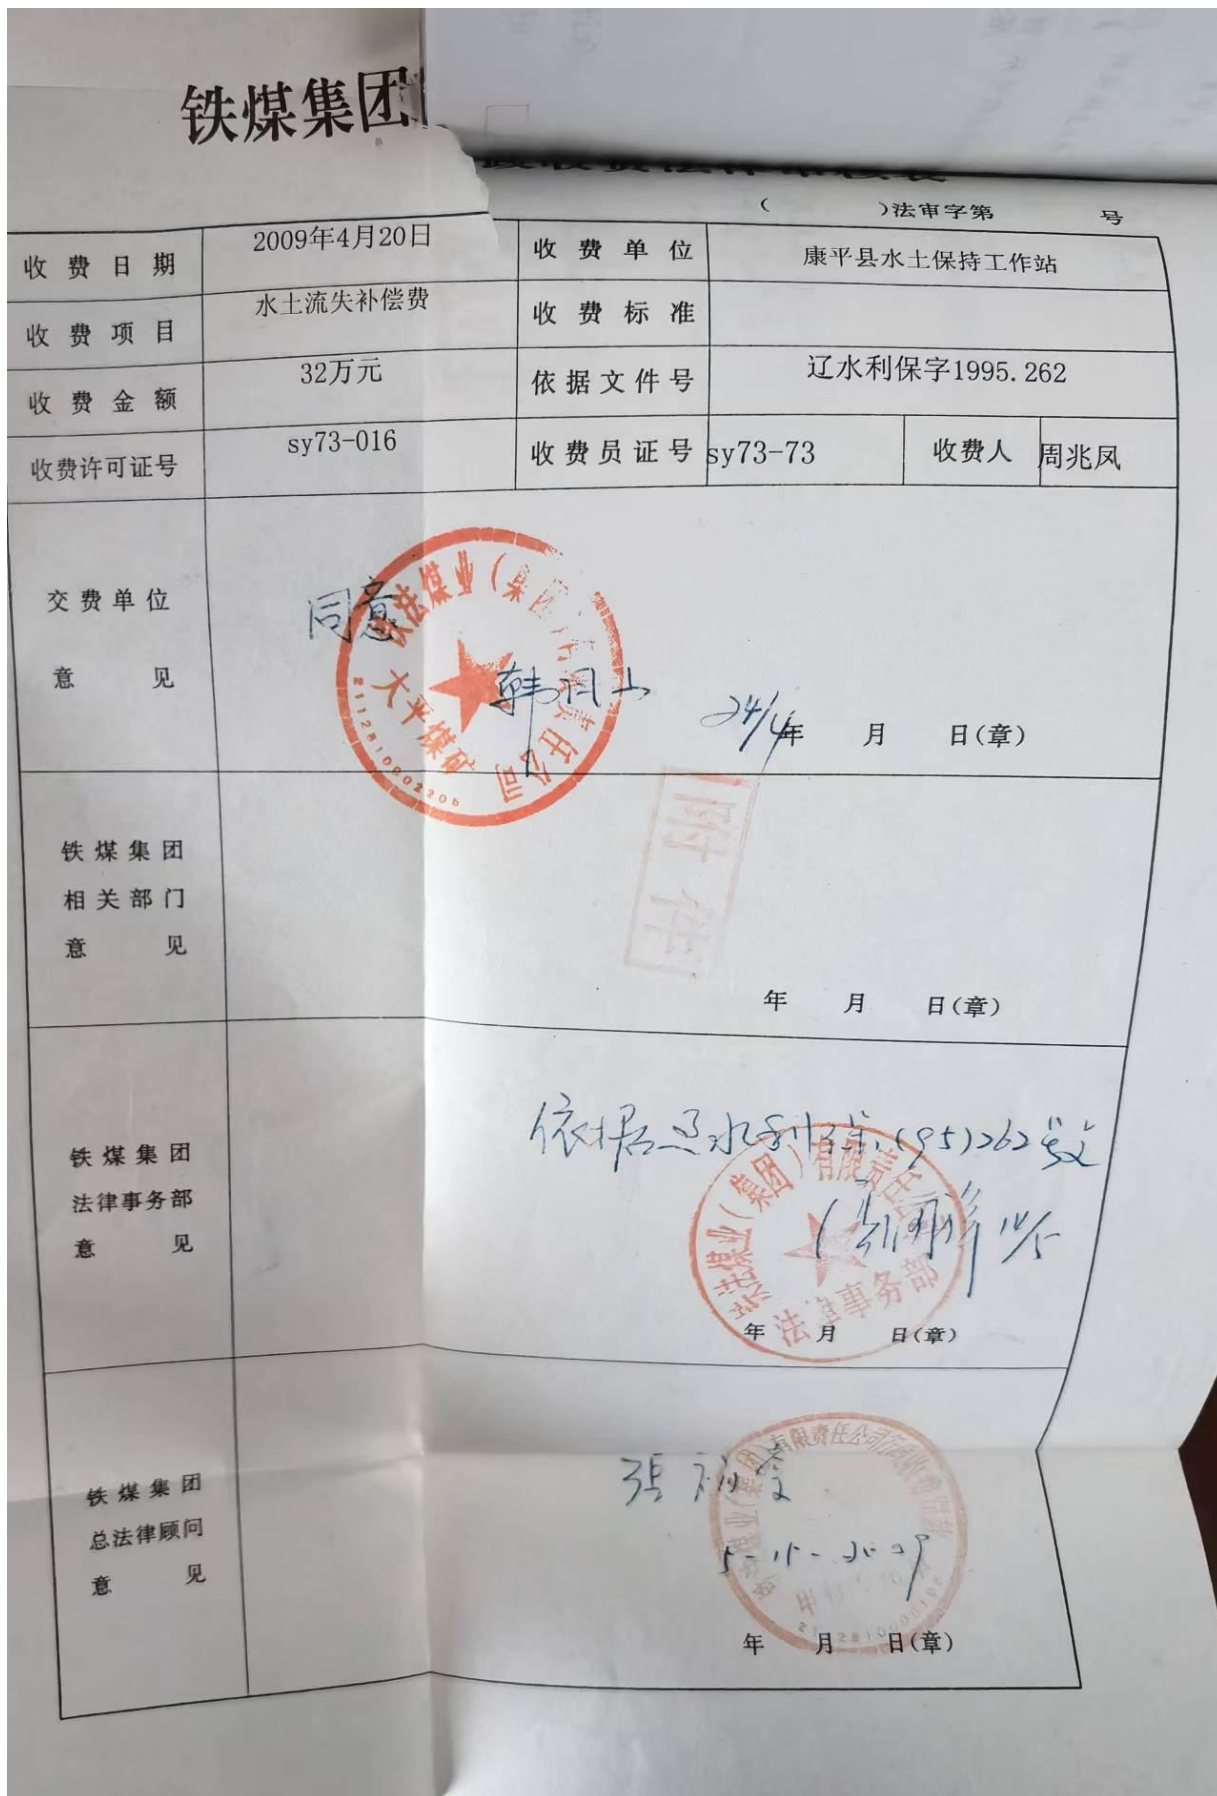 铁煤集团
政收费法律审核表
(　　)法审字第　　号
收费日期 2009年4月20日 收费单位 康平县水土保持工作站
收费项目 水土流失补偿费 收费标准
收费金额 32万元 依据文件号 辽水利保字1995.262
收费许可证号 sy73-016 收费员证号 sy73-73 收费人 周兆凤
交费单位
意见
同意
铁法煤业(集团)有限责任公司
大平煤矿
24/4
年 月 日(章)
铁煤集团
相关部门
意见
附件
年 月 日(章)
铁煤集团
法律事务部
意见
依据辽水利保(95)262号文
铁法煤业(集团)有限责任公司
法律事务部
年 月 日(章)
铁煤集团
总法律顾问
意见
年 月 日(章)